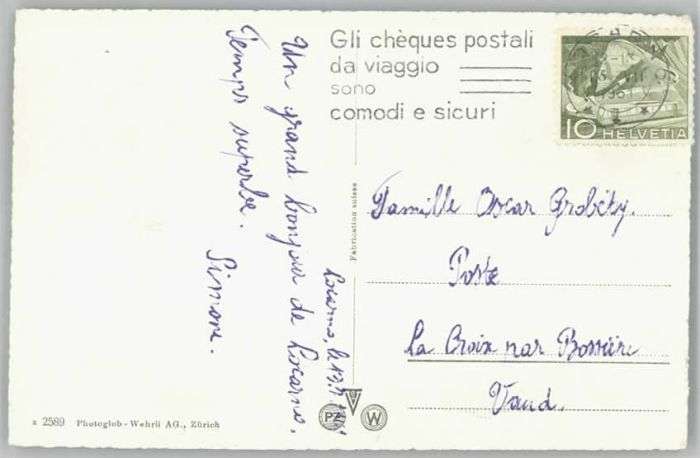 Gli chèques postali
da viaggio
sono
comodi e sicuri
10 HELVETIA
Locarno, le 13.
Un grand bonjour de Locarno.
Temps superbe.
Simone.
Fabrication suisse
Famille Oscar
Poste
La Croix par
Vaud.
PZ W
2589 Photoglob-Wehrli AG., Zürich